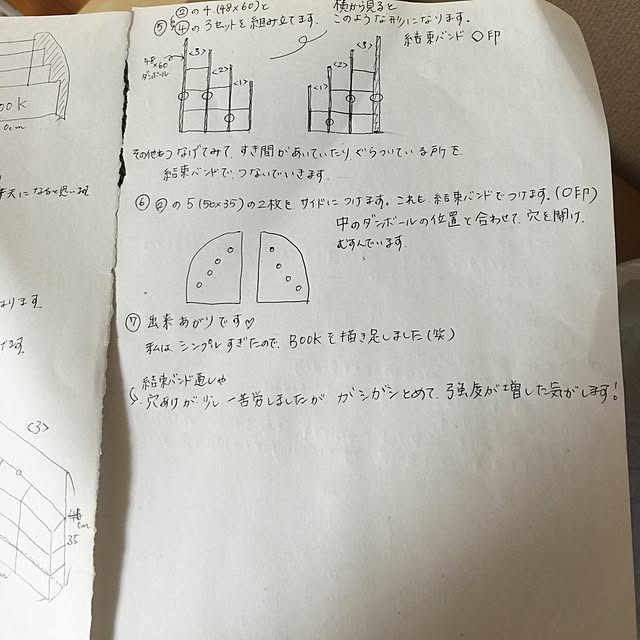 ook
0cm
ります。
けます。
<3>
45
cm
35
②の4(48×60)と
⑤④の3セットを組み立てます。
横から見ると
このような形になります。
結束バンド○印
48×60
ダンボール
<3>
<2>
<1>
<3>
<2>
<1>
その他もつなげてみて、すき間があいていたり、ぐらついている所を
結束バンドでつないでいきます。
⑥②の5(50×35)の2枚をサイドにつけます。これも結束バンドでつけます。(○印)
中のダンボールの位置と合わせて、穴を開け、
むすんでいます。
⑦出来あがりです♡
私は、シンプルすぎたので、BOOKを描き足しました(笑)
結束バンド通しや
穴あけが少し一苦労しましたが ガシガシとめて、強度が増した気がします!